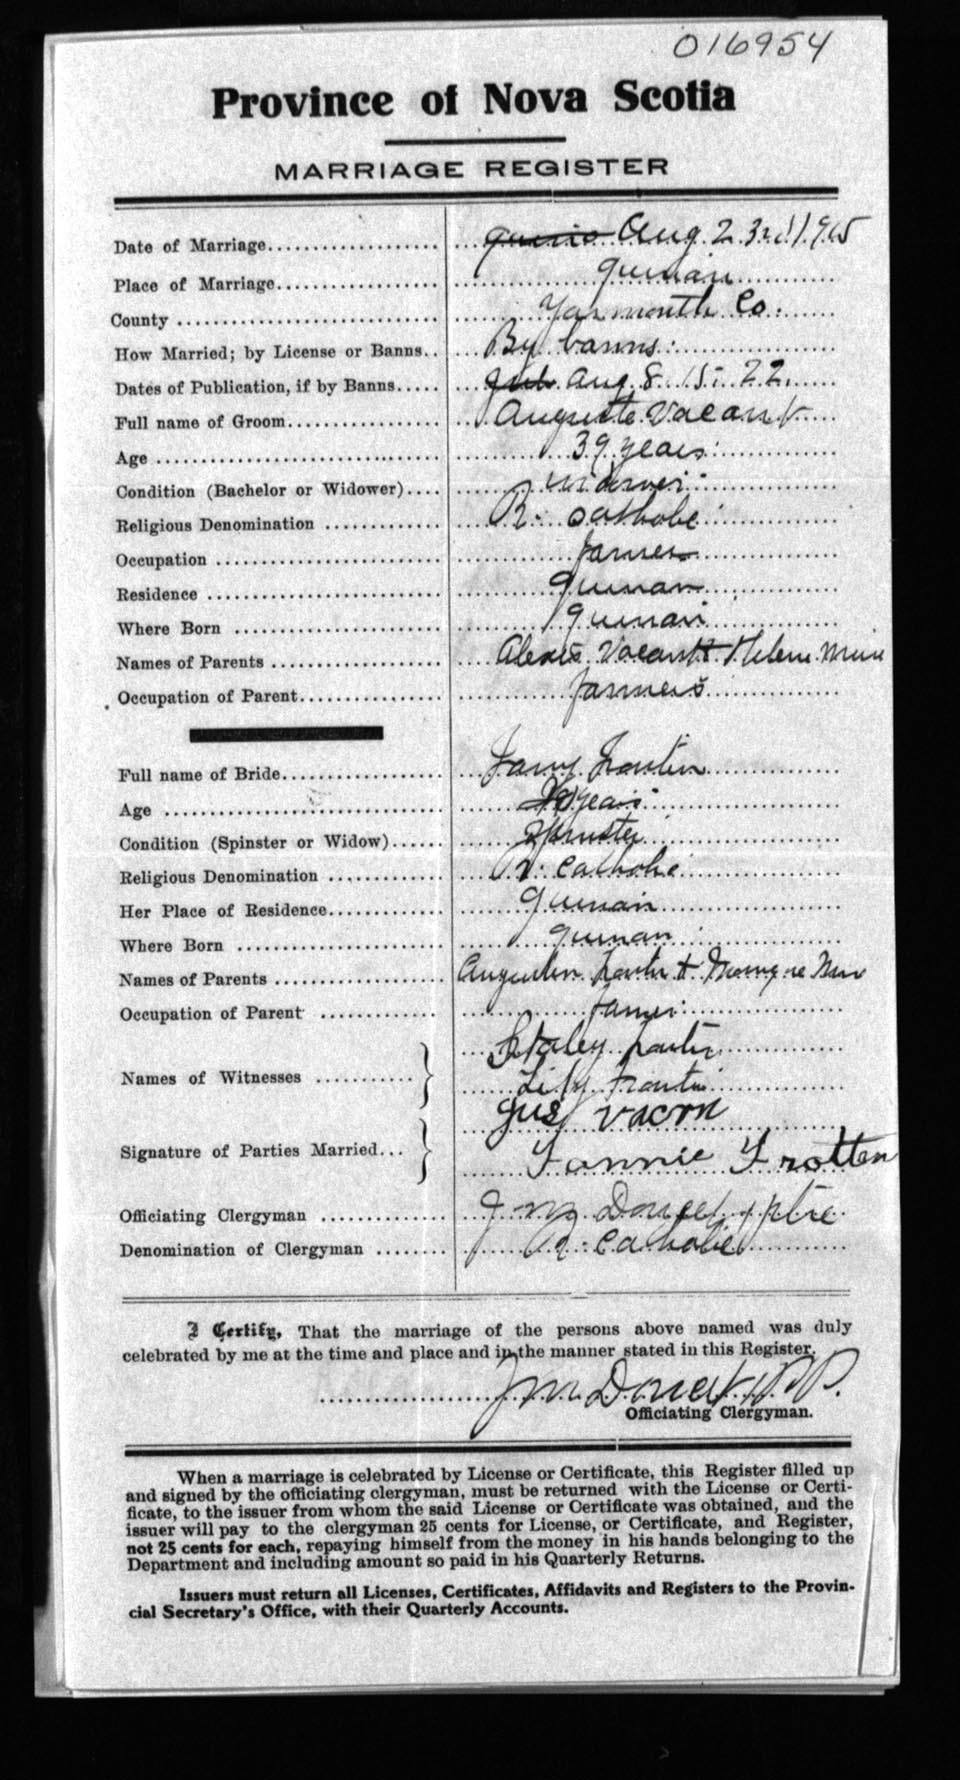 016954
Province of Nova Scotia
MARRIAGE REGISTER
Date of Marriage Aug. 23rd 1915
Place of Marriage Quinan
County Yarmouth Co.
How Married; by License or Banns By banns
Dates of Publication, if by Banns Aug 8. 15. 22.
Full name of Groom Auguste Vacant
Age 39 years
Condition (Bachelor or Widower) widower
Religious Denomination R. catholic
Occupation farmer
Residence Quinan
Where Born Quinan
Names of Parents Alexis Vacant + Helene
Occupation of Parent farmers
Full name of Bride
Age years
Condition (Spinster or Widow) Spinster
Religious Denomination R. catholic
Her Place of Residence Quinan
Where Born Quinan
Names of Parents
Occupation of Parent farmer
Staley
Names of Witnesses
Gus Vacon
Signature of Parties Married
Fannie Frotten
Officiating Clergyman J M Doucet ptre
Denomination of Clergyman R. Catholic
I Certify, That the marriage of the persons above named was duly
celebrated by me at the time and place and in the manner stated in this Register.
J M Doucet P.P.
Officiating Clergyman.
When a marriage is celebrated by License or Certificate, this Register filled up
and signed by the officiating clergyman, must be returned with the License or Certi-
ficate, to the issuer from whom the said License or Certificate was obtained, and the
issuer will pay to the clergyman 25 cents for License, or Certificate, and Register,
not 25 cents for each, repaying himself from the money in his hands belonging to the
Department and including amount so paid in his Quarterly Returns.
Issuers must return all Licenses, Certificates, Affidavits and Registers to the Provin-
cial Secretary's Office, with their Quarterly Accounts.